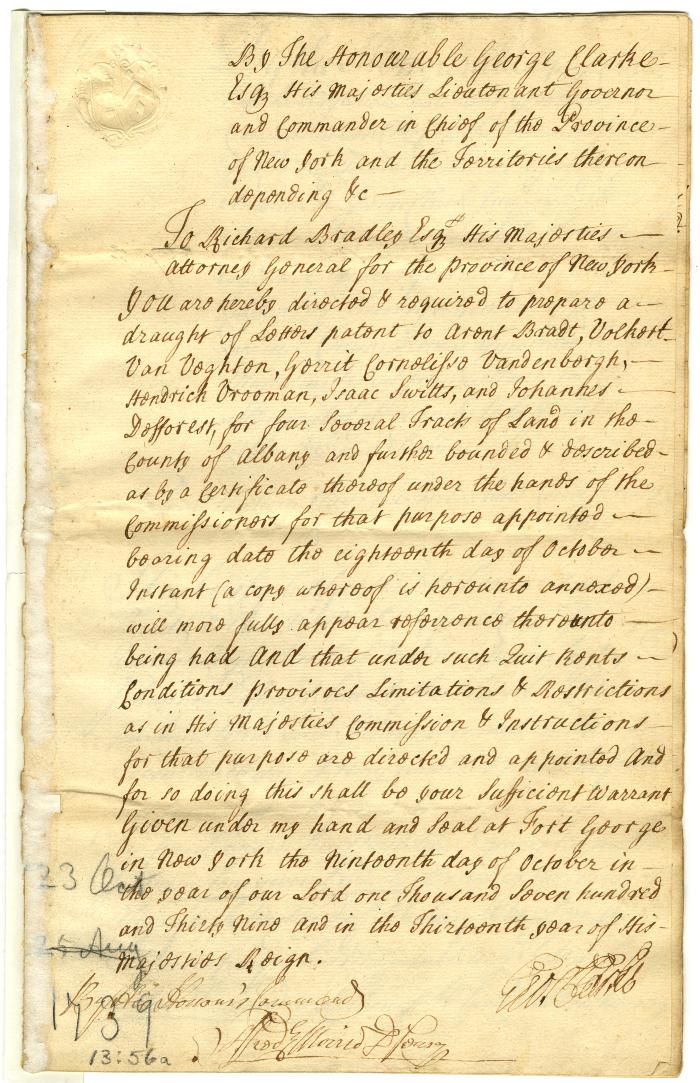 By The Honourable George Clarke
Esqr His Majesties Lieutenant Governor
and Commander in Chief of the Province
of New York and the Territories thereon
depending &c
To Richard Bradley Esqr His Majesties
attorney General for the Province of New York
You are hereby directed & required to prepare a
draught of Letters patent to Arent Bradt, Volkert
Van Veghten, Gerrit Cornelisse Vandenbergh,
Hendrick Vrooman, Isaac Switts, and Johannes
Defforest, for four Several Tracts of Land in the
County of Albany and further bounded & described
as by a Certificate thereof under the hands of the
Commissioners for that purpose appointed
bearing date the eighteenth day of October
Instant (a copy whereof is hereunto annexed)
will more fully appear refference thereunto
being had And that under such Quit Rents
Conditions provisoes Limitations & Restrictions
as in His Majesties Commission & Instructions
for that purpose are directed and appointed And
for so doing this shall be your Sufficient Warrant
Given under my hand and Seal at Fort George
in New York the Ninteenth day of October in
the year of our Lord one Thousand Seven hundred
and Thirty Nine And in the Thirteenth year of His
Majesties Reign.
Geo: Clarke
By His Honour's Command
Fred Morris D Secry
23 Oct
25 Aug
1739
13:56a